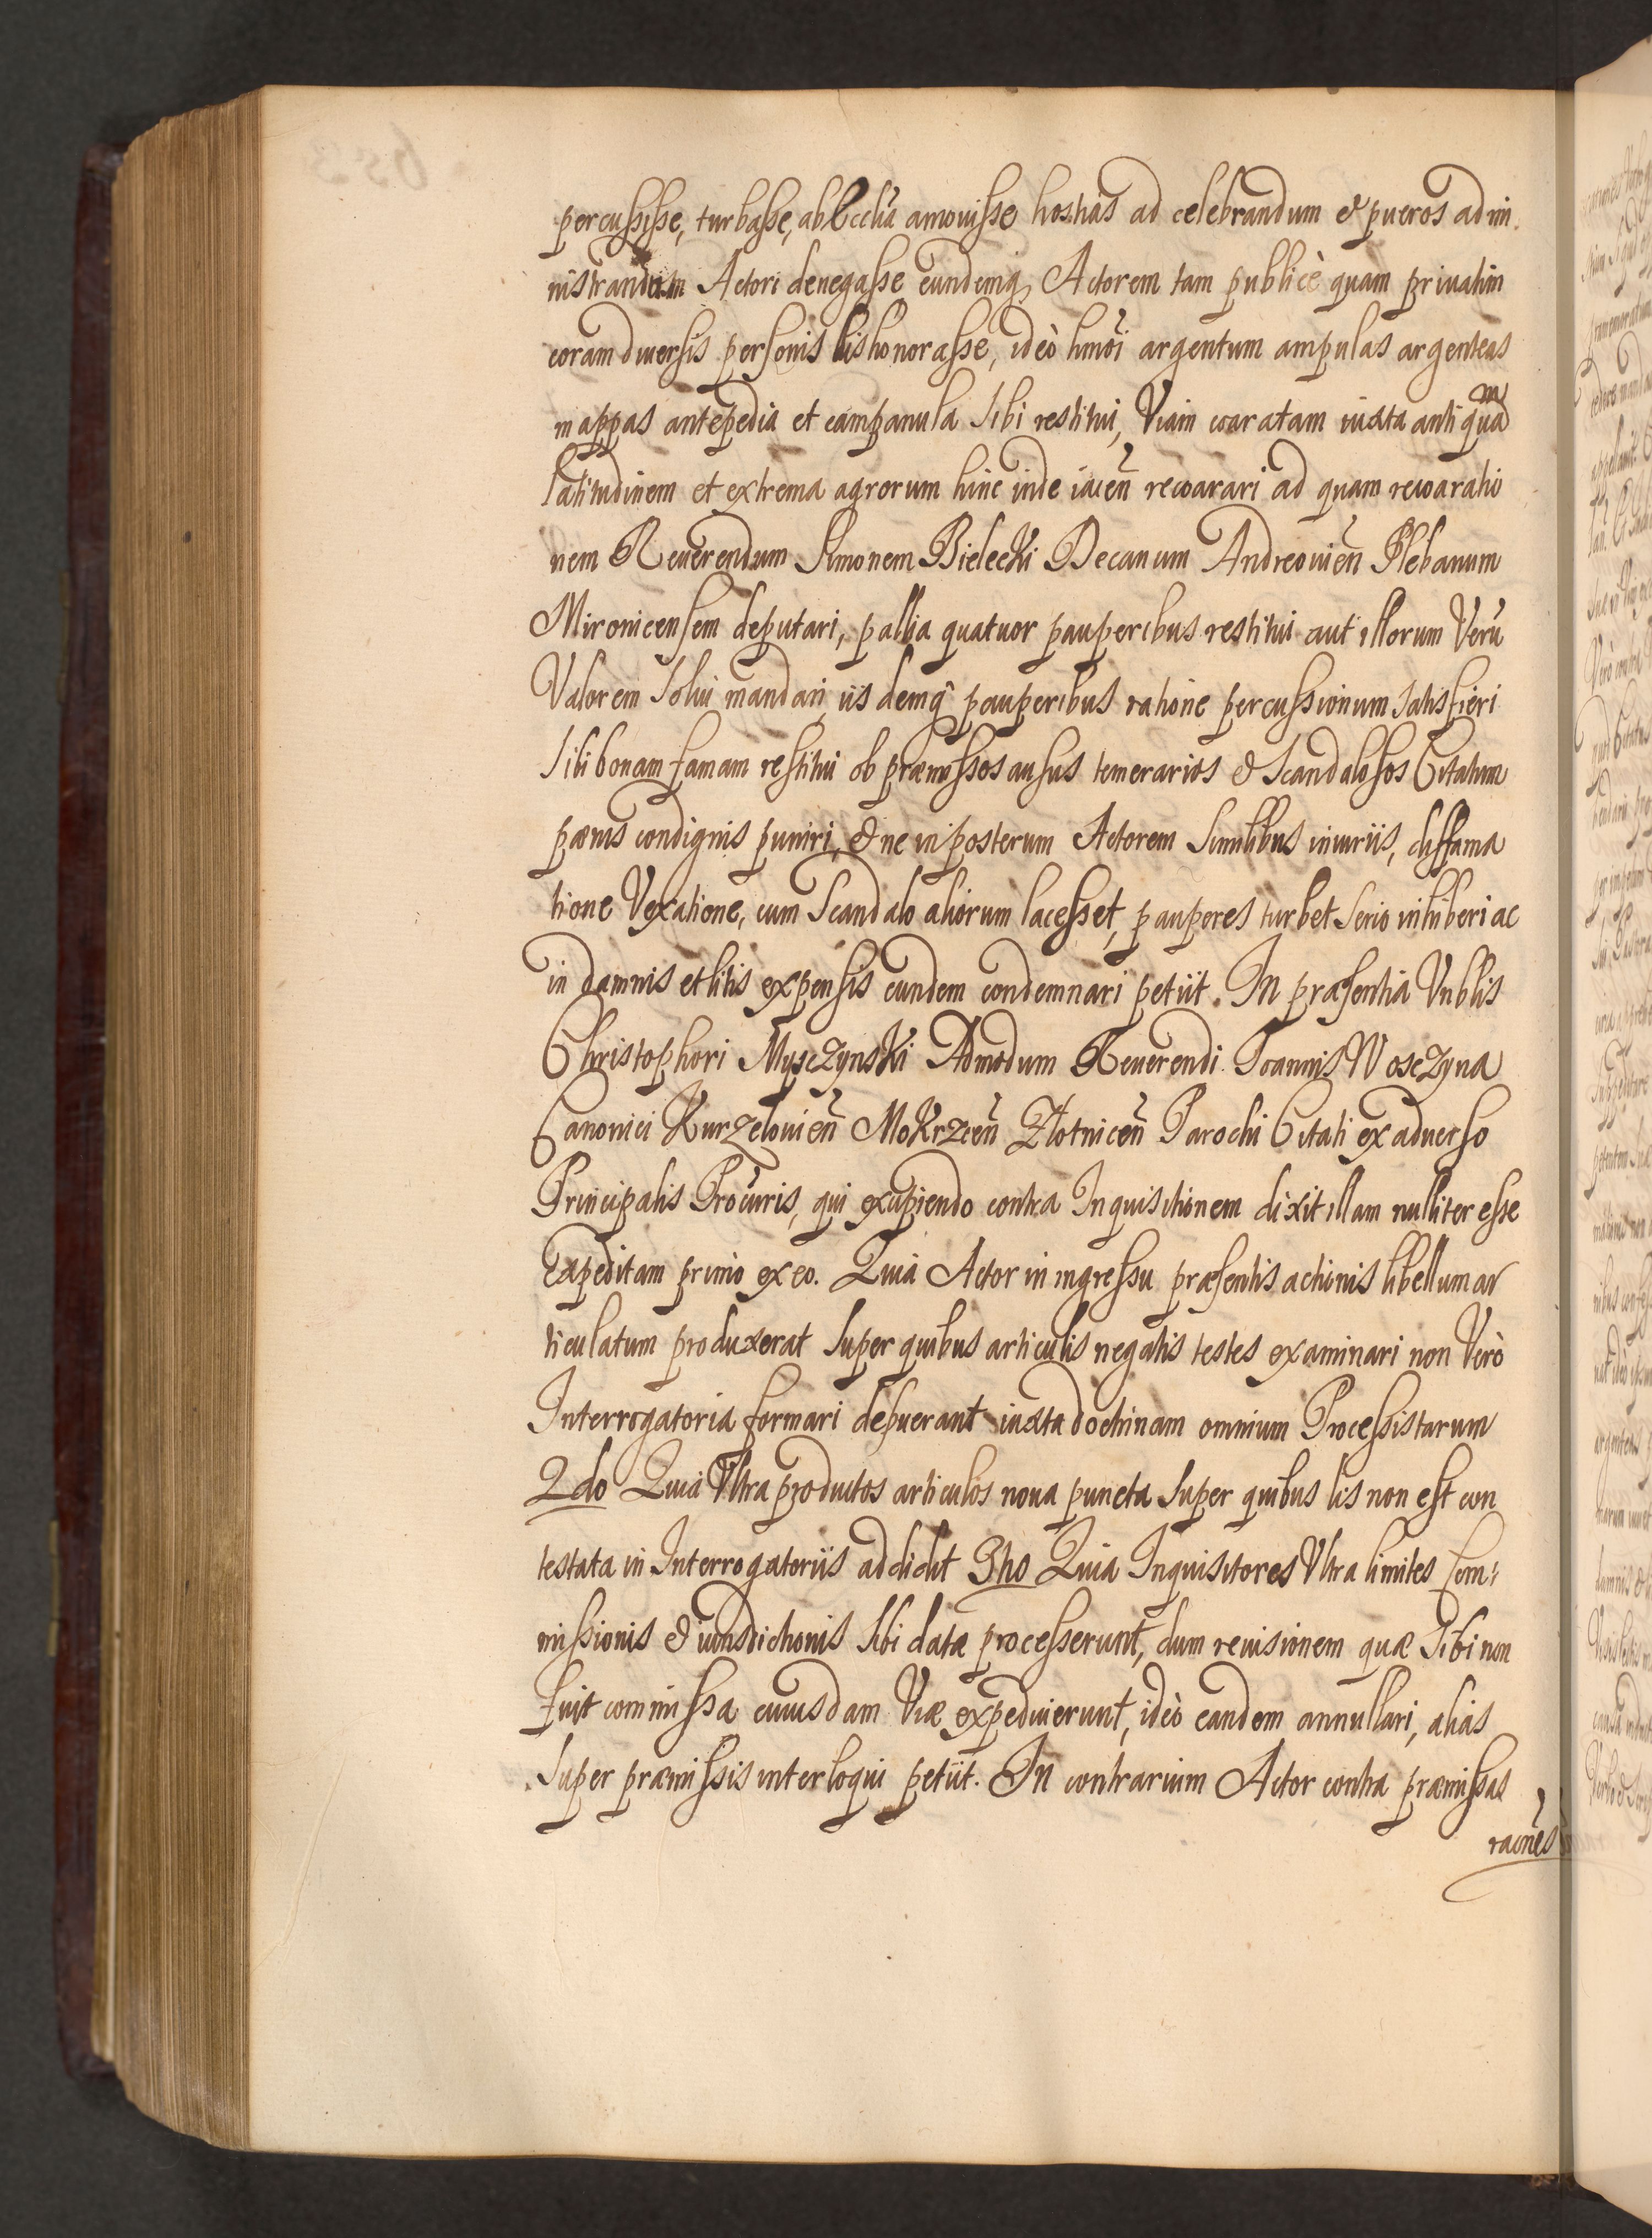 percussisse, turbasse, ab Ecclia amouisse hostias ad celebrandum et pueros admi
nistrandum Actori denegasse eundemq, Actorem tam publicè quam priuatim
coram diuersis personis dishonorasse, ideò hmõi argentum ampulas argenteas
mappas antepedia et campanula sibi restitui, Viam coaratam iuxta antiquam
latitudinem et extrema agrorum hinc inde iacen̄ recoarari ad quam recoaratio
nem Reuerendum Simonem Bielecki Decanum Andreouien̄ Plebanum
Mironicensem deputari, pallia quatuor pauperibus restitui aut illorum Verũ
Valorem solui mandari iisdemq̃ pauperibus ratione percussionum satisfieri
sibi bonam famam restitui ob præmissos ausus temerarios et scandalosos Citatum
pænis condignis puniri, et ne in posterum Actorem similibus iniuriis, diffama
tione Vexatione, cum scandalo aliorum lacesset, pauperes turbet serio inhiberi ac
in damnis et litis expensis eundem condemnari petiit. In præsentia Vnblis
Christophori Myszynski Admodum Reuerendi Joannis Woszyna
Canonici Kurzelouien̄ Mokrzcen̄ Zlotnicen̄ Parochi Citati ex aduerso
Principalis Procuris, qui excipiendo contra Inquisitionem dixit illam nulliter esse
expeditam primo ex eo. Quia Actor in ingressu præsentis actionis libellum ar
ticulatum produxerat super quibus articulis negatis testes examinari non Verò
Interrogatoria formari debuerant iuxta doctrinam omnium Processistarum
2do Quia Vltra productos articulos noua puncta super quibus lis non est con
testata in Interrogatoriis addidit 3tio Quia Inquisitores Vltra limites Com:
missionis et iurisdictionis sibi datæ processerunt, dum reuisionem quæ sibi non
fuit commissa cuiusdam Viæ expediuerunt, ideò eandem annullari, alias
super præmissis interloqui petiit. In contrarium Actor contra præmissas
raões